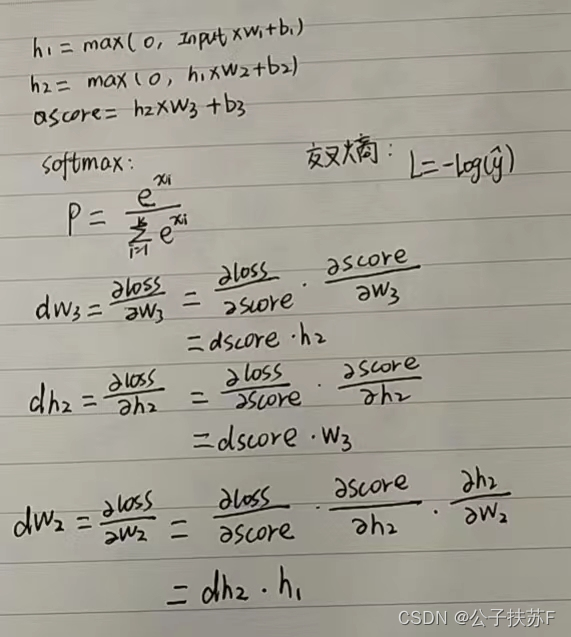 h₁ = max(0, Input×w₁+b₁)
h₂ = max(0, h₁×w₂+b₂)
ascore = h₂×w₃+b₃
softmax: 交叉熵: L=-log(ŷ)
P = e^{xi} / Σ_{i=1}^{k} e^{xi}
dw₃ = ∂loss/∂w₃ = ∂loss/∂score · ∂score/∂w₃
= dscore · h₂
dh₂ = ∂loss/∂h₂ = ∂loss/∂score · ∂score/∂h₂
= dscore · w₃
dw₂ = ∂loss/∂w₂ = ∂loss/∂score · ∂score/∂h₂ · ∂h₂/∂w₂
= dh₂ · h₁
CSDN @公子扶苏F